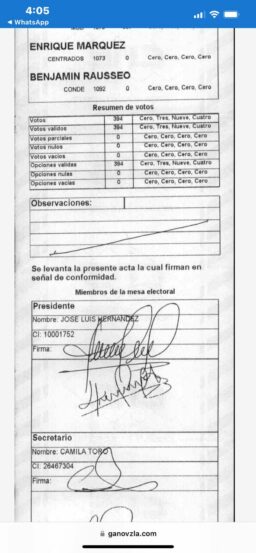 4:05
WhatsApp
ENRIQUE MARQUEZ
CENTRADOS 1073 0 Cero, Cero, Cero, Cero
BENJAMIN RAUSSEO
CONDE 1092 0 Cero, Cero, Cero, Cero
Resumen de votos
Votos 394 Cero, Tres, Nueve, Cuatro
Votos validos 394 Cero, Tres, Nueve, Cuatro
Votos parciales 0 Cero, Cero, Cero, Cero
Votos nulos 0 Cero, Cero, Cero, Cero
Votos vacios 0 Cero, Cero, Cero, Cero
Opciones validas 394 Cero, Tres, Nueve, Cuatro
Opciones nulas 0 Cero, Cero, Cero, Cero
Opciones vacias 0 Cero, Cero, Cero, Cero
Observaciones:
Se levanta la presente acta la cual firman en
señal de conformidad.
Miembros de la mesa electoral
Presidente
Nombre: JOSE LUIS HERNANDEZ
CI: 10001752
Firma:
Secretario
Nombre: CAMILA TORO
CI: 26467304
Firma:
ganovzla.com